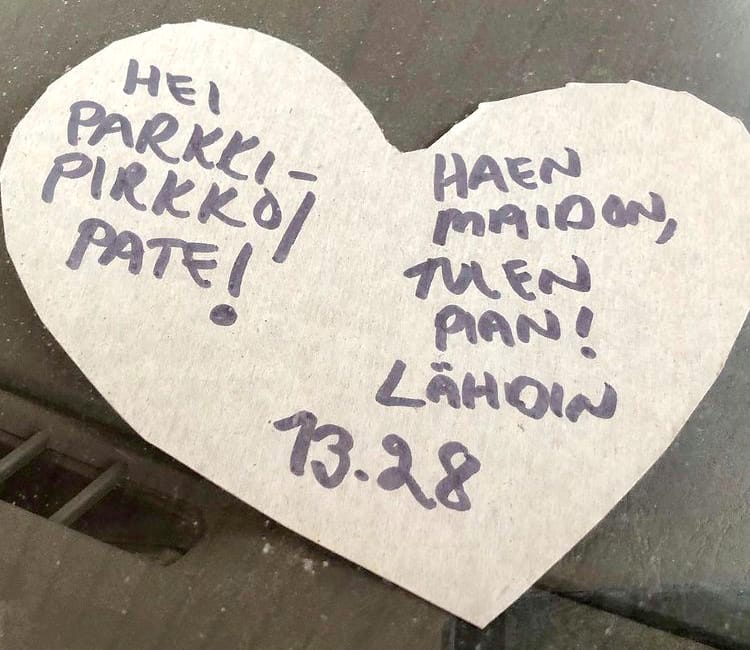 HEI
PARKKI-
PIRKKO/
PATE!
HAEN
MAIDON,
TULEN
PIAN!
LÄHDIN
13.28